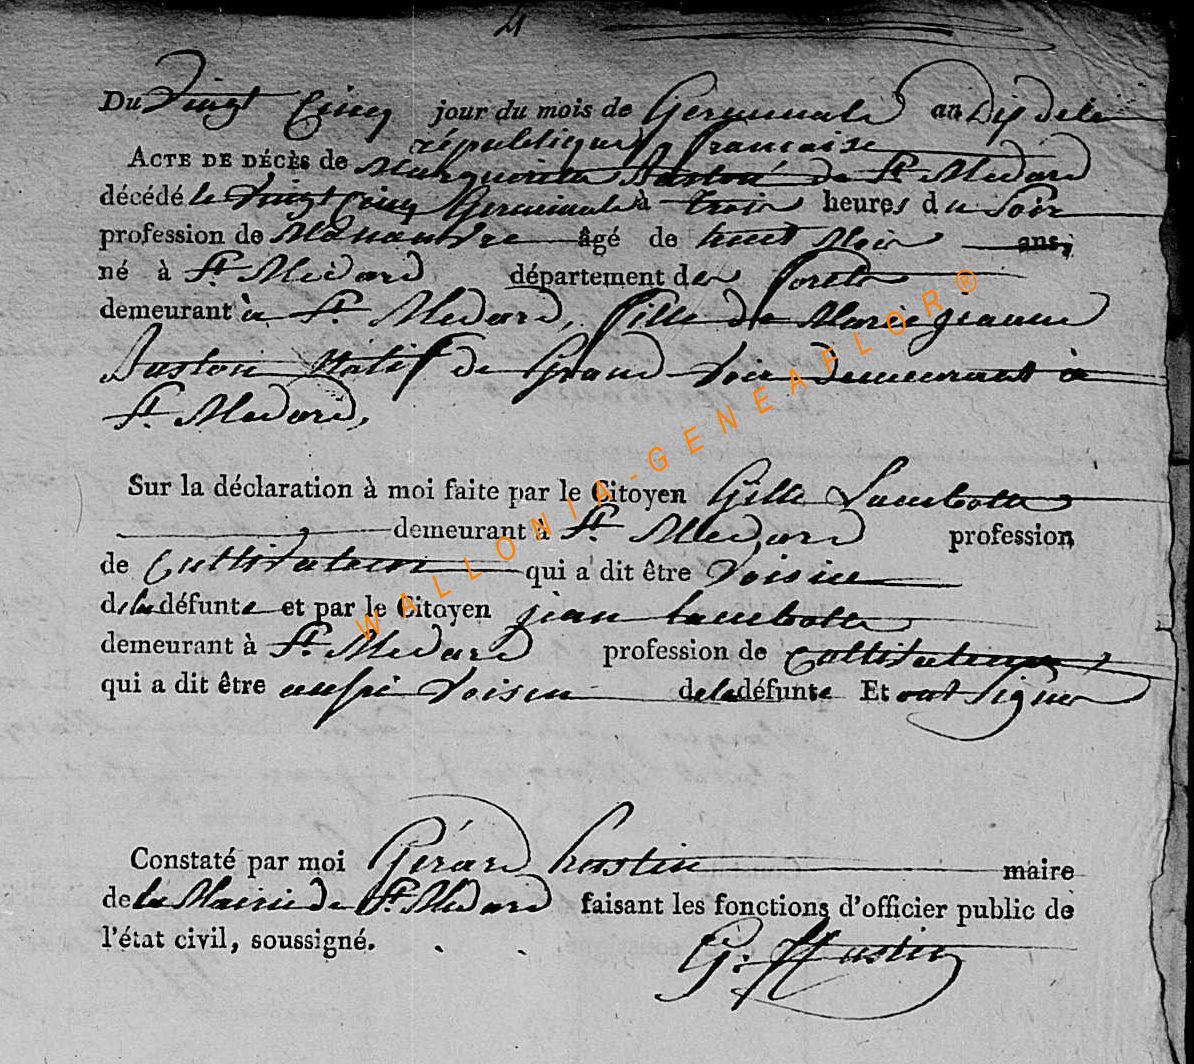 4
Du Vingt Cinq jour du mois de Germinale an Dix de la
république française
ACTE DE DÉCÈS de Marguerite de St. Medard
décédé le Vingt Cinq Germinale à trois heures du Soir
profession de Manauvre âgé de huit Mois ans,
né à St. Médard département des forets
demeurant à St. Medard, fille de Marie jeanne
Natif de Grand Voir demeurant à
St. Medard,
Sur la déclaration à moi faite par le Citoyen Gille Lambotte
demeurant à St. Medard profession
de Cultivateur qui a dit être Voisin
de la défunte et par le Citoyen jean Lambotte
demeurant à St. Medard profession de Cultivateur,
qui a dit être aussi Voisin de la défunte Et ont Signer
Constaté par moi Gérard hustin maire
de la Mairie de St. Medard faisant les fonctions d'officier public de
l'état civil, soussigné.
G: Hustin
WALLONIA-GENEAFLOR®